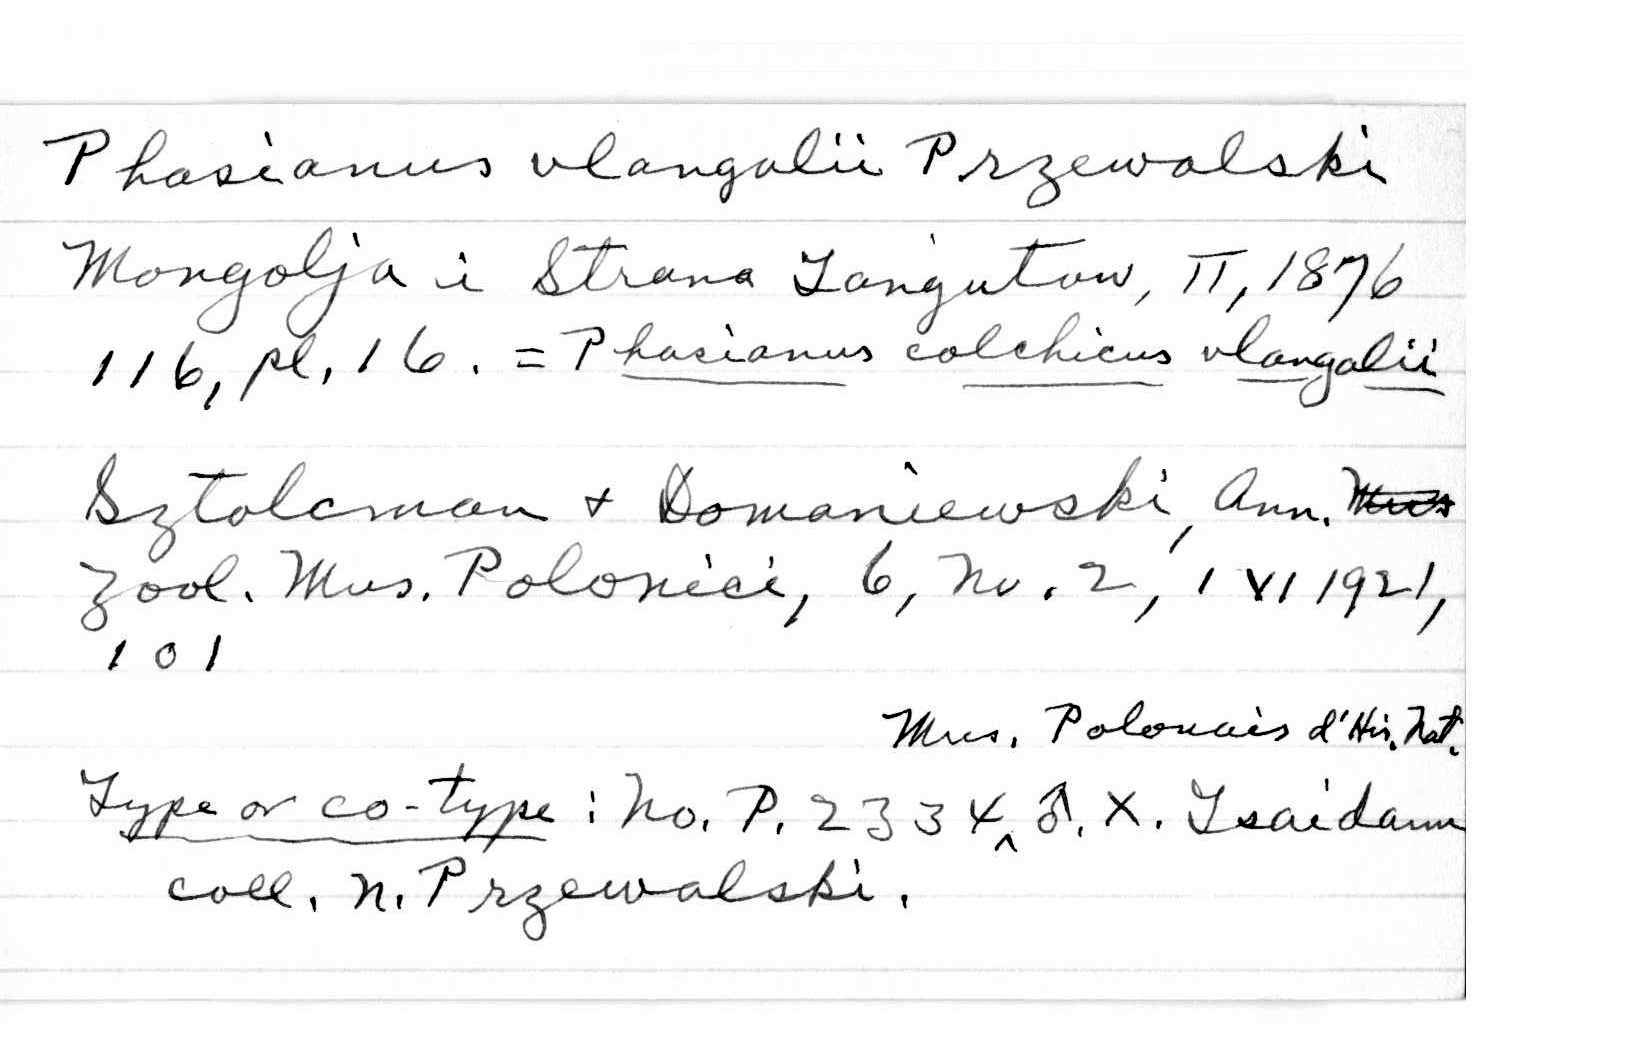 Phasianus vlangalii Przewalski
Mongolja i Strana Tangutow, II, 1876
116, pl, 16. = Phasianus colchicus vlangalii
Sztolcman + Domaniewski, Ann. Mus
Zool. Mus. Polonici, 6, No. 2, 1 VI 1921,
101
Mus. Polonais d'His. Nat.
Type or co-type: No. P. 2334, ♂. X. Tsaidam
coll. N. Przewalski.